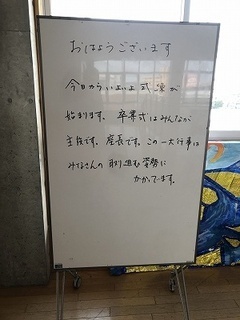 おはようございます
今日からいよいよ式練が
始まります。卒業式はみんなが
主役です。座長です。この一大行事は
みなさんの取り組む姿勢に
かかってます。